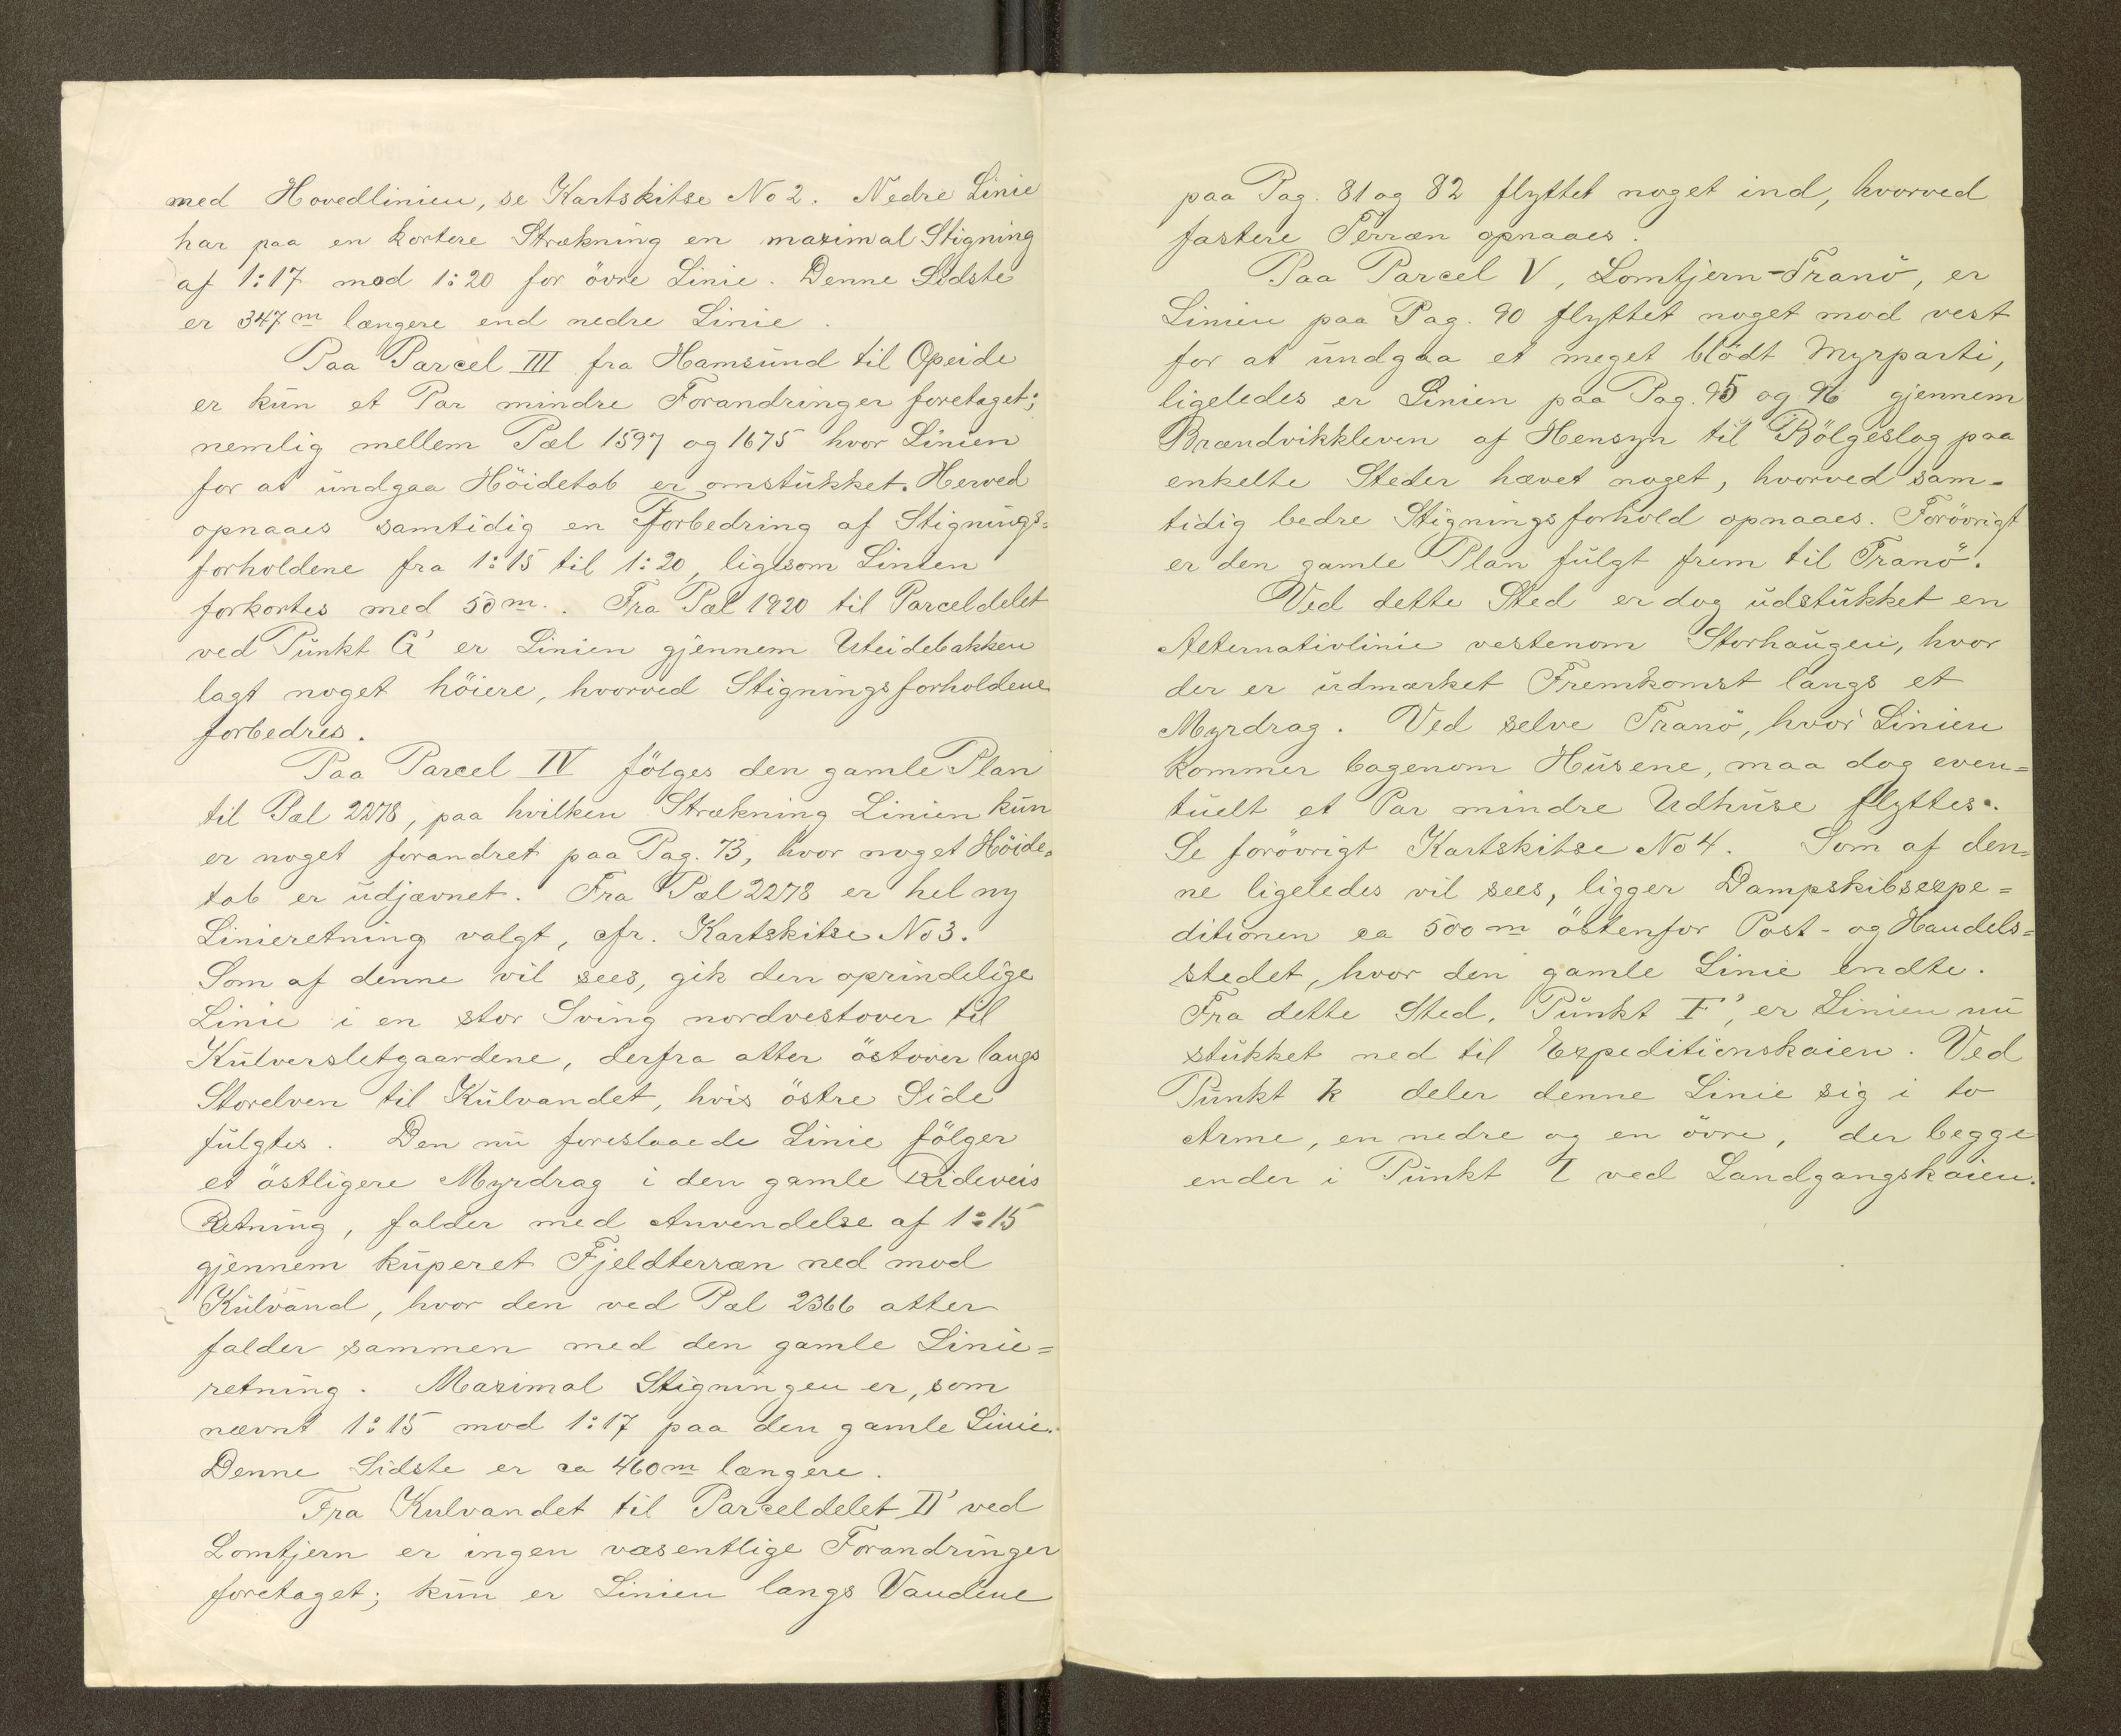 med Hovedlinien, se Kartskitse No 2. Nedre Linie
har paa en kortere Strækning en maximal Stigning
af 1:17 mod 1:20 for övre Linie. Denne Sidste
er 347 m længere end nedre Linie.
Paa Parcel III fra Hamsund til Opeide
er kun et Par mindre Forandringer foretaget;
nemlig mellem Pæl 1597 og 1675 hvor Linien
for at undgaa Höidetab er omstukket. Herved
opnaaes samtidig en Forbedring af Stignings=
forholdene fra 1:15 til 1:20, ligesom Linien
forkortes med 50 m. Fra Pæl 1920 til Parceldelet
ved Punkt G' er Linien gjennem Uteidebakken
lagt noget höiere, hvorved Stigningsforholdene
forbedres.
Paa Parcel IV fölges den gamle Plan
til Pæl 2278, paa hvilken Strækning Linien kun
er noget forandret paa Pag. 73, hvor noget Höide=
tab er udjævnet. Fra Pæl 2278 er hel ny
Linieretning valgt, cfr. Kartskitse No 3.
Som af denne vil sees, gik den oprindelige
Linie i en stor Sving nordvestover til
Kulversletgaardene, derfra atter östover langs
Storelven til Kulvandet, hvis östre Side
fulgtes. Den nu foreslaaede Linie fölger
et östligere Myrdrag i den gamle Rideveis
Retning, falder med Anvendelse af 1:15
gjennem kuperet Fjeldterræn ned mod
Kulvand, hvor den ved Pæl 2366 atter
falder sammen med den gamle Linie=
retning. Maximal Stigningen er, som
nævnt 1:15 mod 1:17 paa den gamle Linie.
Denne Sidste er ca 460 m længere.
Fra Kulvandet til Parceldelet D' ved
Lomtjern er ingen væsentlige Forandringer
foretaget; kun er Linien langs Vandene
paa Pag. 81 og 82 flyttet noget ind, hvorved
fastere Terræn opnaaes.
Paa Parcel V, Lomtjern-Tranö, er
Linien paa Pag. 90 flyttet noget mod vest
for at undgaa et meget blödt Myrparti,
ligeledes er Linien paa Pag. 95 og 96 gjennem
Brændvikkleven af Hensyn til Bölgeslag paa
enkelte Steder hævet noget, hvorved sam-
tidig bedre Stigningsforhold opnaaes. Forövrigt
er den gamle Plan fulgt frem til Tranö.
Ved dette Sted er dog udstukket en
Alternativlinie vestenom Storhaugen, hvor
der er udmærket Fremkomst langs et
Myrdrag. Ved selve Tranö, hvor Linien
kommer bagenom Husene, maa dog even=
tuelt et Par mindre Udhuse flyttes.
Se forövrigt Kartskitse No 4. Som af den=
ne ligeledes vil sees, ligger Dampskibsexpe=
ditionen ca 500 m östenfor Post- og Handels=
stedet, hvor den gamle Linie endte.
Fra dette Sted, Punkt F', er Linien nu
stukket ned til Expeditionskaien. Ved
Punkt k deler denne Linie sig i to
Arme, en nedre og en övre, der begge
ender i Punkt I ved Landgangskaien.